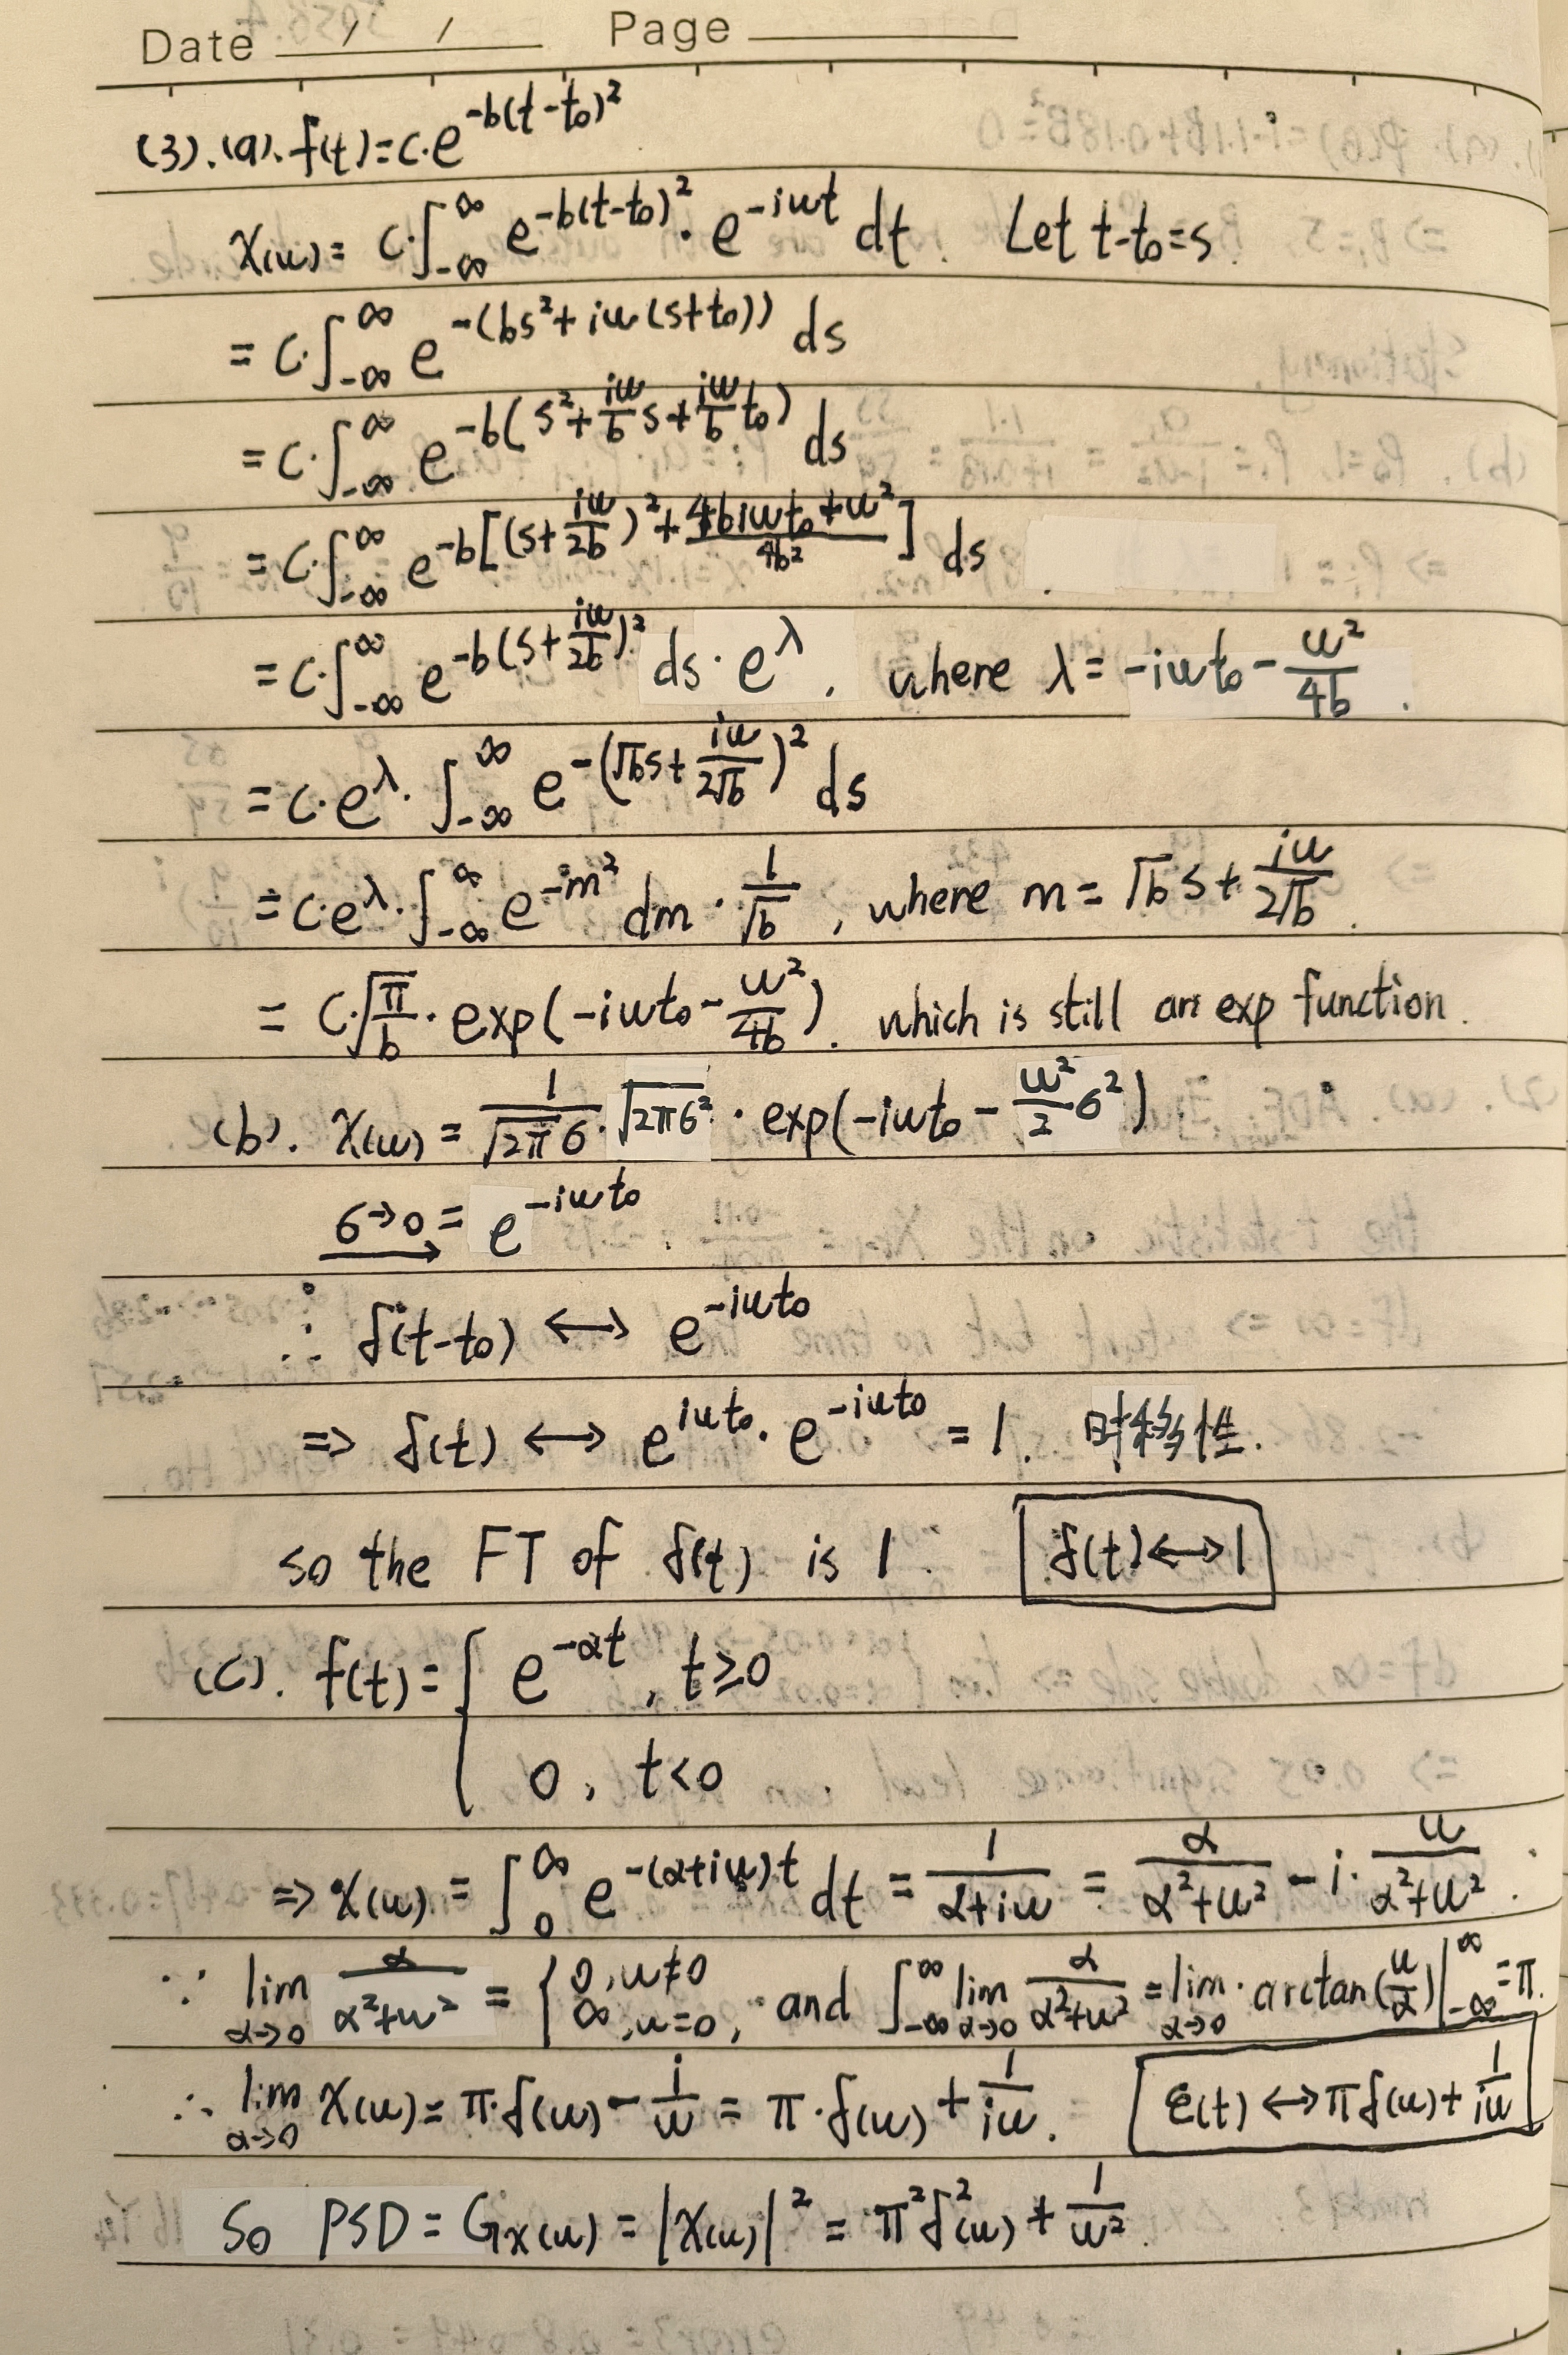 Date / / Page
(3).(a). f(t)=c·e^{-b(t-t₀)²}
X(ω)= c·∫_{-∞}^{∞} e^{-b(t-t₀)²}·e^{-iωt} dt. Let t-t₀=s.
= c·∫_{-∞}^{∞} e^{-(bs²+iω(s+t₀))} ds
= c·∫_{-∞}^{∞} e^{-b(s²+\frac{iω}{b}s+\frac{iω}{b}t₀)} ds
= c·∫_{-∞}^{∞} e^{-b[(s+\frac{iω}{2b})²+\frac{4biωt₀+ω²}{4b²}]} ds.
= c·∫_{-∞}^{∞} e^{-b(s+\frac{iω}{2b})²} ds·e^λ, where λ=-iωt₀-\frac{ω²}{4b}.
= c·e^λ·∫_{-∞}^{∞} e^{-(√b s+\frac{iω}{2√b})²} ds
= c·e^λ·∫_{-∞}^{∞} e^{-m²} dm·\frac{1}{√b}, where m=√b s+\frac{iω}{2√b}.
= c·√\frac{π}{b}·exp(-iωt₀-\frac{ω²}{4b}). which is still an exp function.
(b). X(ω)=\frac{1}{√2π σ}·√2πσ²·exp(-iωt₀-\frac{ω²}{2}σ²).
σ→0 = e^{-iωt₀}.
∴ δ(t-t₀) ↔ e^{-iωt₀}
⇒ δ(t) ↔ e^{iωt₀}·e^{-iωt₀} = 1. 时移性.
so the FT of δ(t) is 1. δ(t)↔1
(c). f(t)={ e^{-αt}, t≥0
0, t<0
⇒ X(ω)=∫_0^{∞} e^{-(α+iω)t} dt = \frac{1}{α+iω} = \frac{α}{α²+ω²} - i·\frac{ω}{α²+ω²}.
∵ lim_{α→0} \frac{α}{α²+ω²} = { 0, ω≠0 ∞, ω=0, and ∫_{-∞}^{∞} lim_{α→0} \frac{α}{α²+ω²} = lim_{α→0}·arctan(\frac{ω}{α})|_{-∞}^{∞} = π.
∴ lim_{α→0} X(ω)= π·δ(ω)-\frac{i}{ω} = π·δ(ω)+\frac{1}{iω}. ε(t)↔πδ(ω)+\frac{1}{iω}
So PSD= G_X(ω) = |X(ω)|² = π²δ²(ω)+\frac{1}{ω²}.